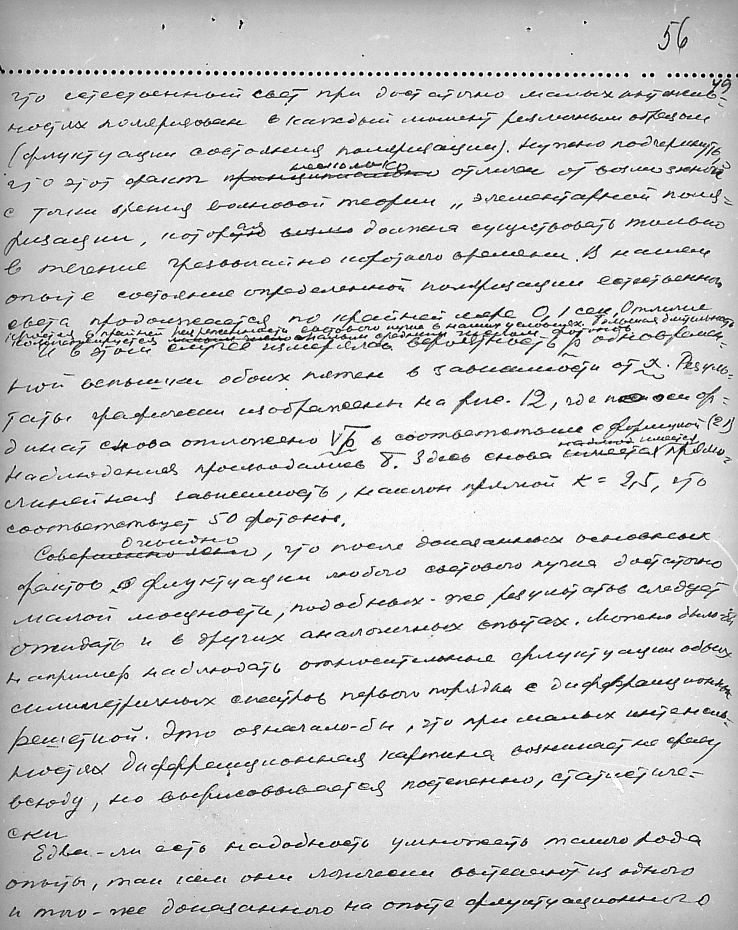 56
49
что естественный свет при достаточно малых интенсив-
ностях поляризован в каждый момент различным образом
(флуктуации состояния поляризации). Нужно подчеркнуть,
несколько
что этот факт принципиально отличен от возможной
с точки зрения волновой теории „элементарной поля-
ризации, которая должна существовать только
в течение чрезвычайно короткого времени. В нашем
опыте состояние определенной поляризации естественного
света продолжается по крайней мере 0,1 сек. Отличие
кроется в крайней разреженности светового пучка в наших условиях. Большая длительность
И в этом случае измерялась вероятность p одновремен-
ной вспышки обоих пятен в зависимости от x. Резуль-
таты графически изображены на рис. 12, где по оси ор-
динат снова отложено √p в соответствии с формулой (21)
наблюдения производились γ. Здесь снова имеется прямо-
налицо имеется
линейная зависимость, наклон прямой k = 2,5, что
соответствует 50 фотонам.
Очевидно
Совершенно ясно, что после доказанных основных
фактов о флуктуации любого светового пучка достаточно
малой мощности, подобных-же результатов следует
ожидать и в других аналогичных опытах. Можно было-бы
например наблюдать относительные флуктуации обоих
симметричных спектров первого порядка с диффракционной
решеткой. Это означало-бы, что при малых интенсив-
ностях диффракционная картина возникает не сразу
всюду, но вырисовывается постепенно, статистиче-
ски
Едва-ли есть надобность умножать такого рода
опыты, так как они логически вытекают из одного
и того-же доказанного на опыте флуктуационного